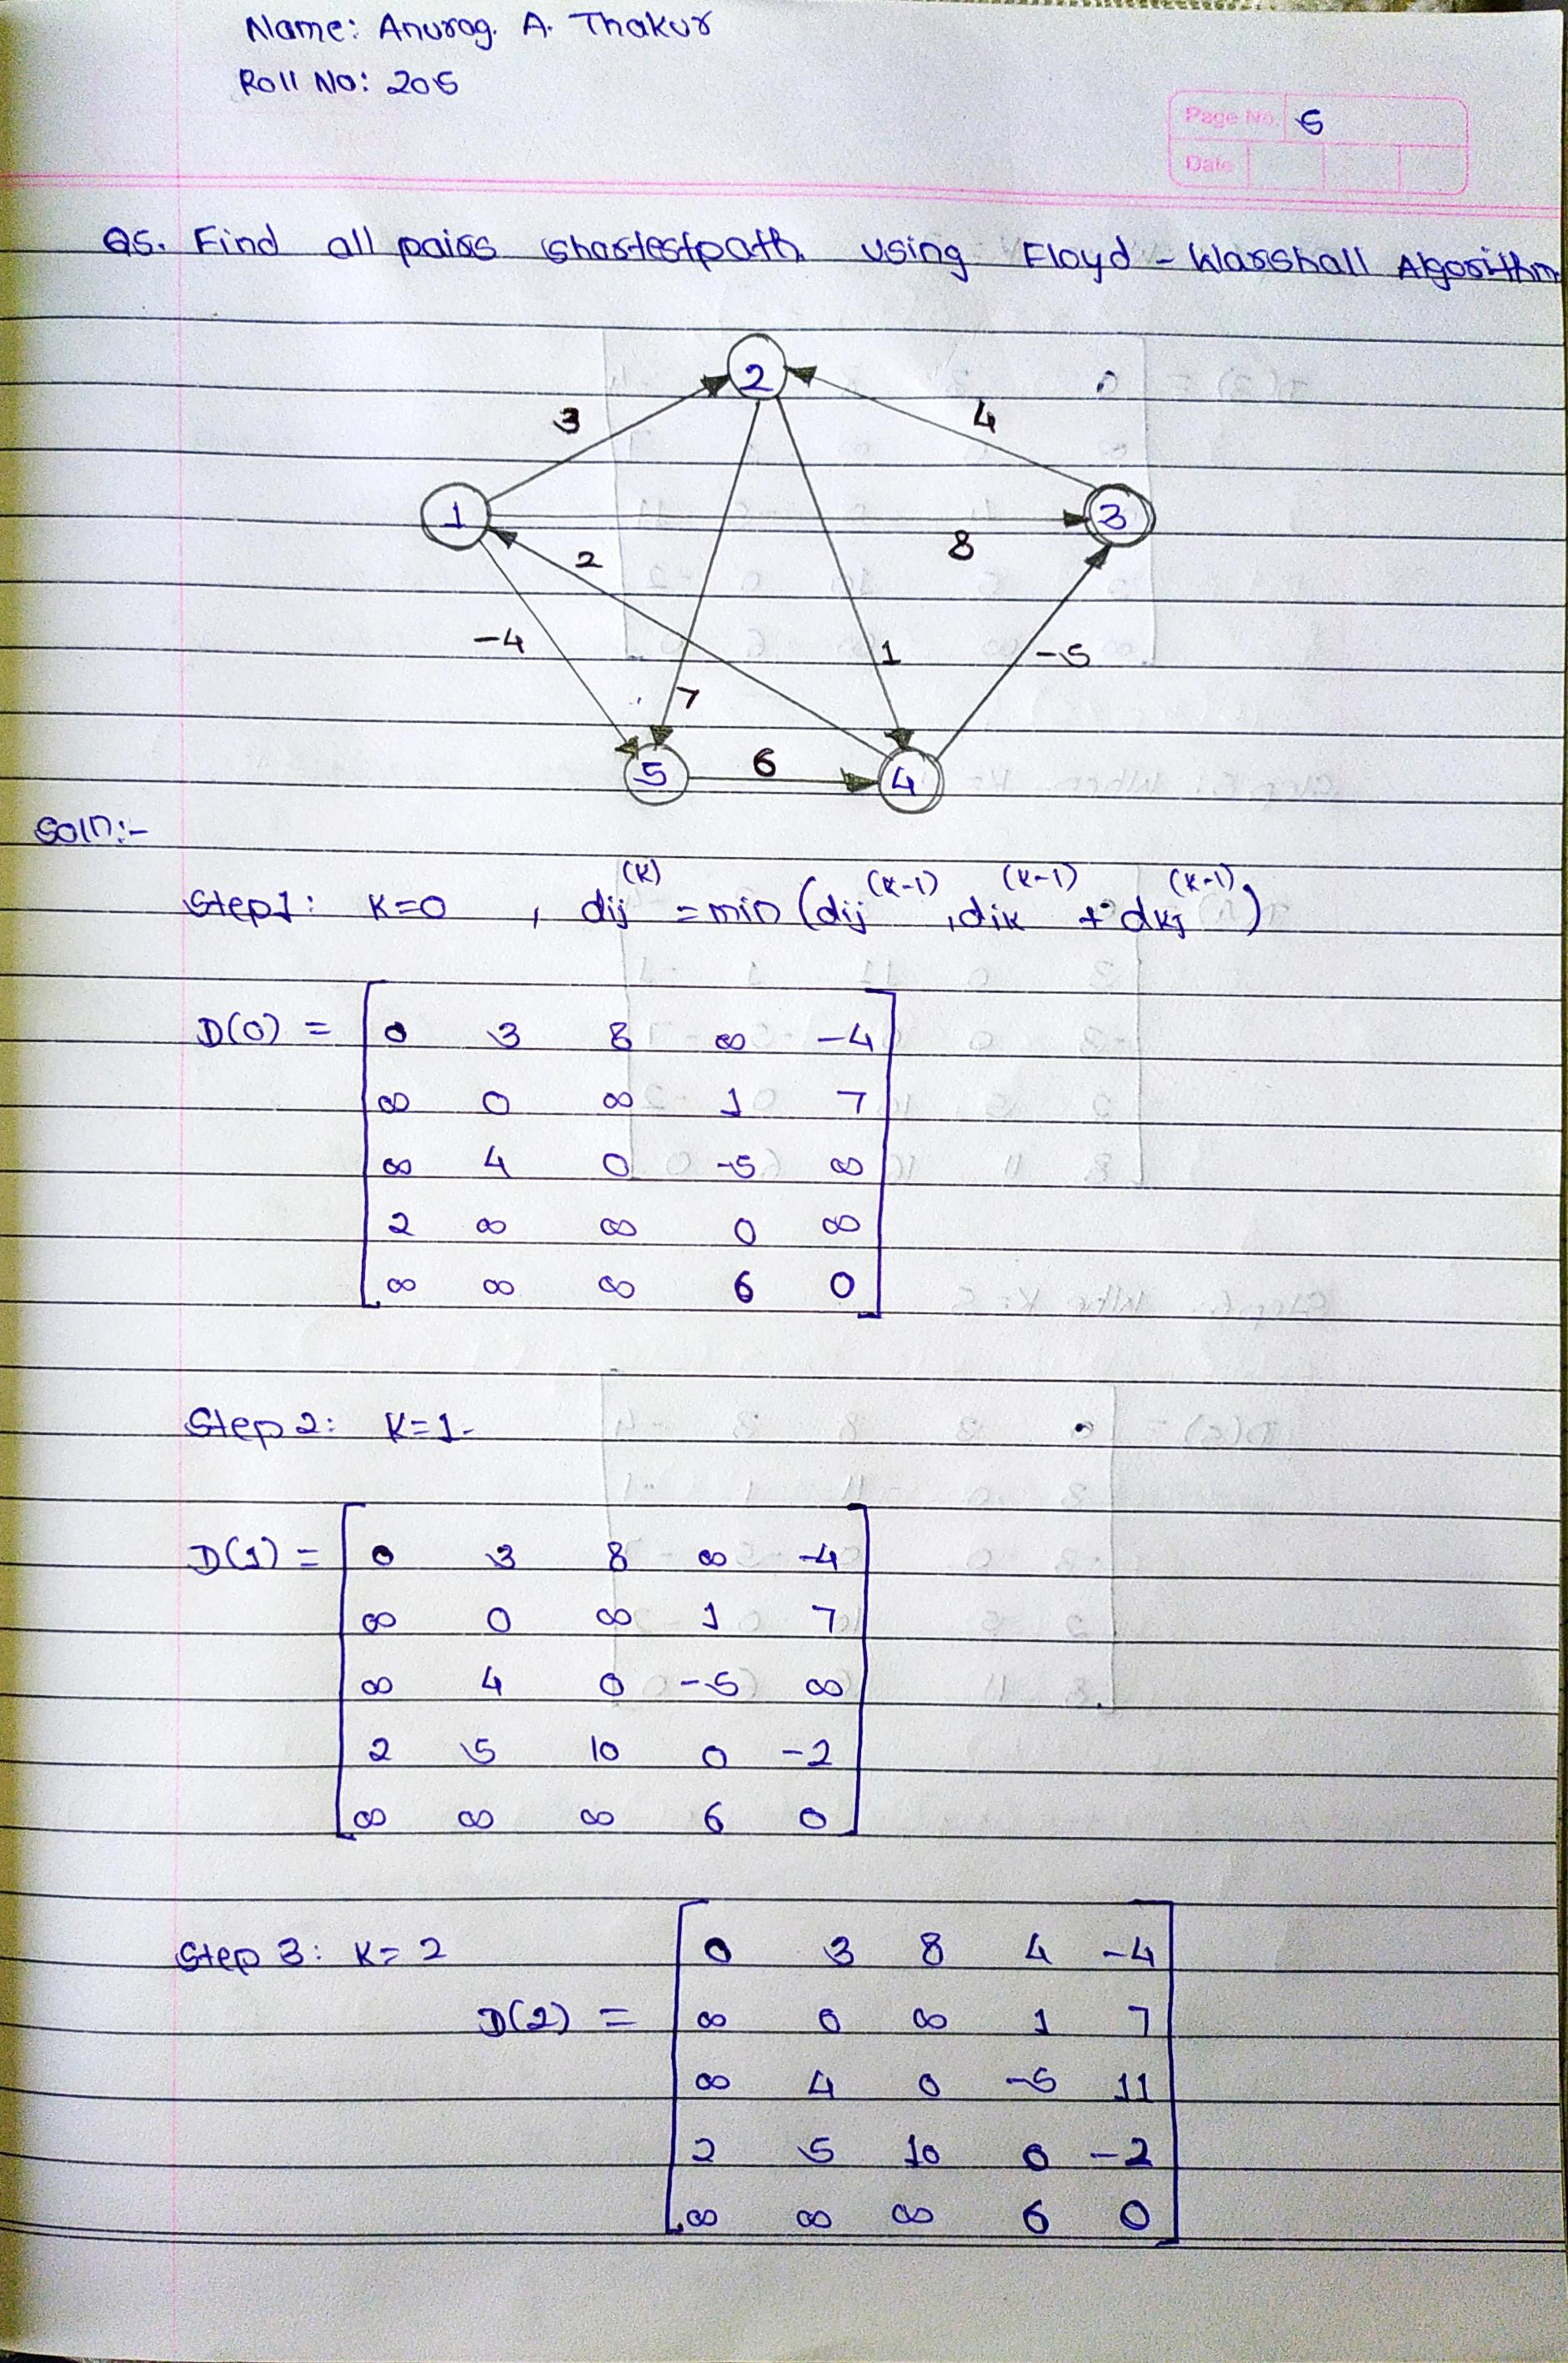 Name: Anurag. A. Thakur
Roll No: 205
Page No. 5
Date
Q5. Find all pairs shortestpath using Floyd - Warshall Algorithm
2
3
4
1
3
2
8
-4
1
-5
7
5
6
4
Soln:-
Step1: K=0 , dij^(K) = min (dij^(K-1), dik^(K-1) + dkj^(K-1))
D(0) =
0 3 8 ∞ -4
∞ 0 ∞ 1 7
∞ 4 0 -5 ∞
2 ∞ ∞ 0 ∞
∞ ∞ ∞ 6 0
Step 2: K=1.
D(1) =
0 3 8 ∞ -4
∞ 0 ∞ 1 7
∞ 4 0 -5 ∞
2 5 10 0 -2
∞ ∞ ∞ 6 0
Step 3: K=2
D(2) =
0 3 8 4 -4
∞ 0 ∞ 1 7
∞ 4 0 -5 11
2 5 10 0 -2
∞ ∞ ∞ 6 0